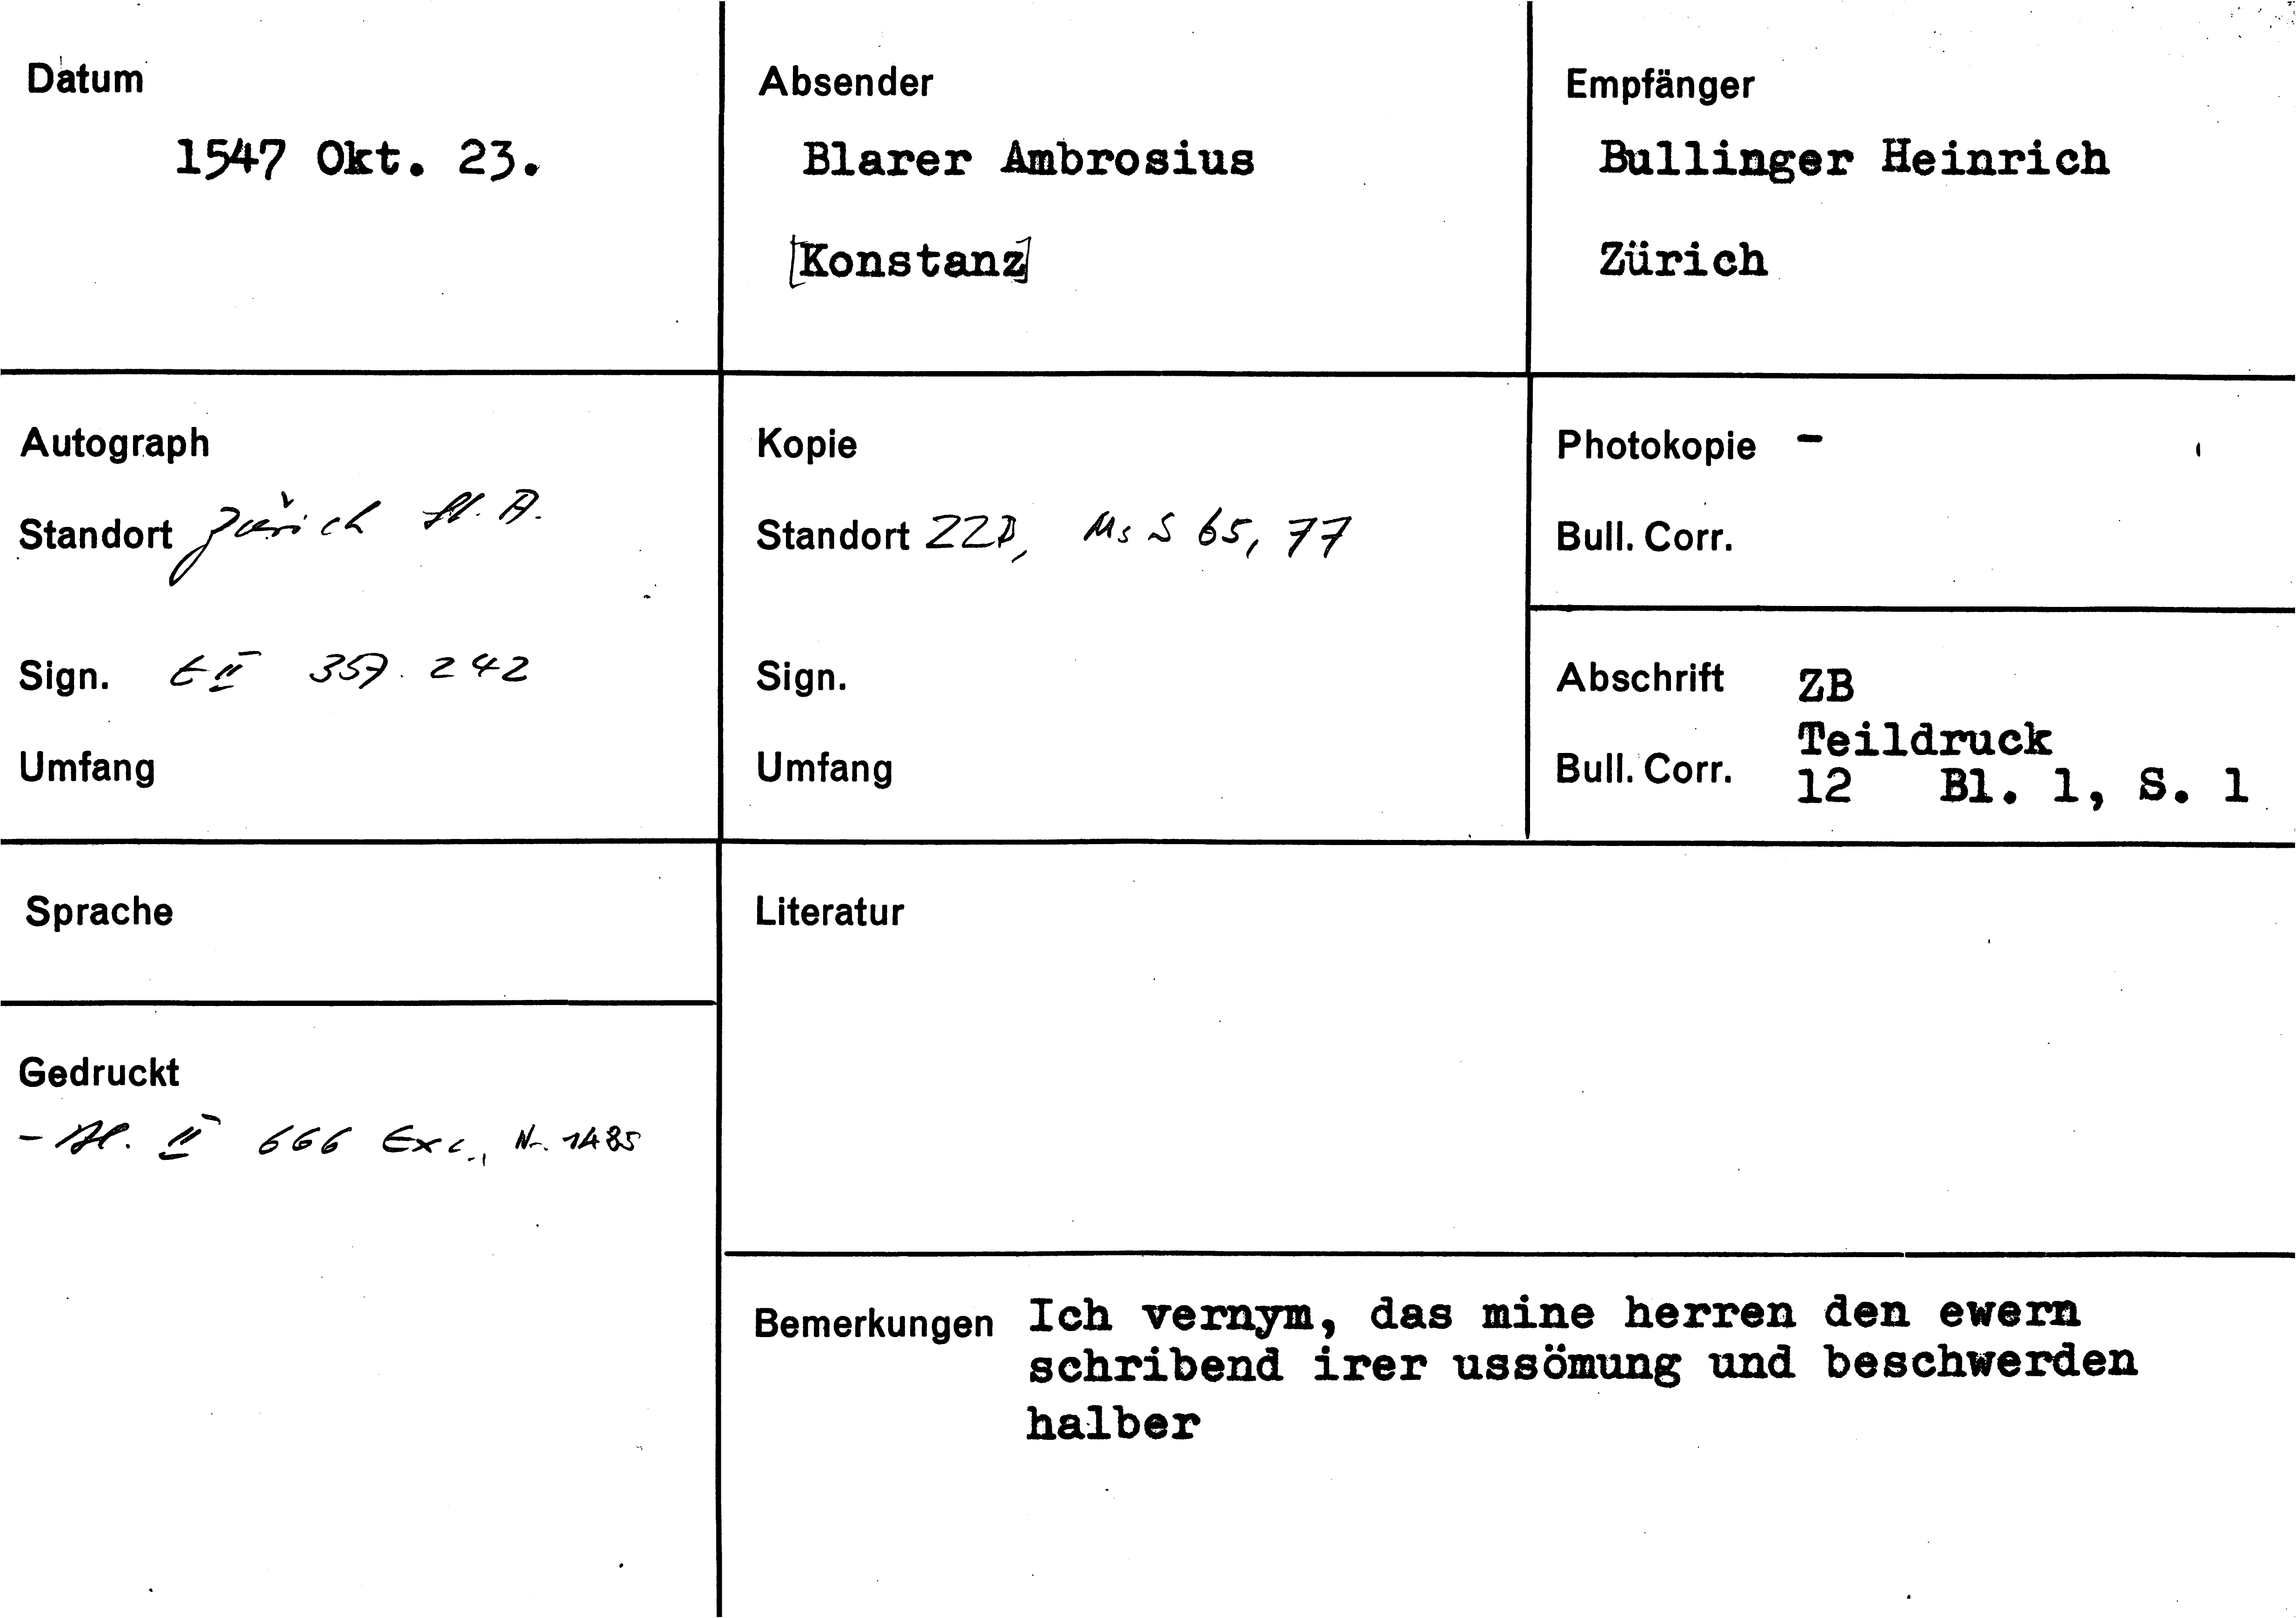 Datum
1547 Okt. 23.
Absender
Blarer Ambrosius
[Konstanz]
Empfänger
Bullinger Heinrich
Zürich
Autograph
Standort Zürich St. A.
Sign. E II 357. 242
Umfang
Kopie
Standort ZZB, Ms S 65, 77
Sign.
Umfang
Photokopie -
Bull. Corr.
Abschrift ZB
Teildruck
Bull. Corr. 12 Bl. 1, S. 1
Sprache
Gedruckt
- II 666 Exc., Nr. 1485
Literatur
Bemerkungen Ich vernym, das mine herren den ewern
schribend irer ussömung und beschwerden
halber